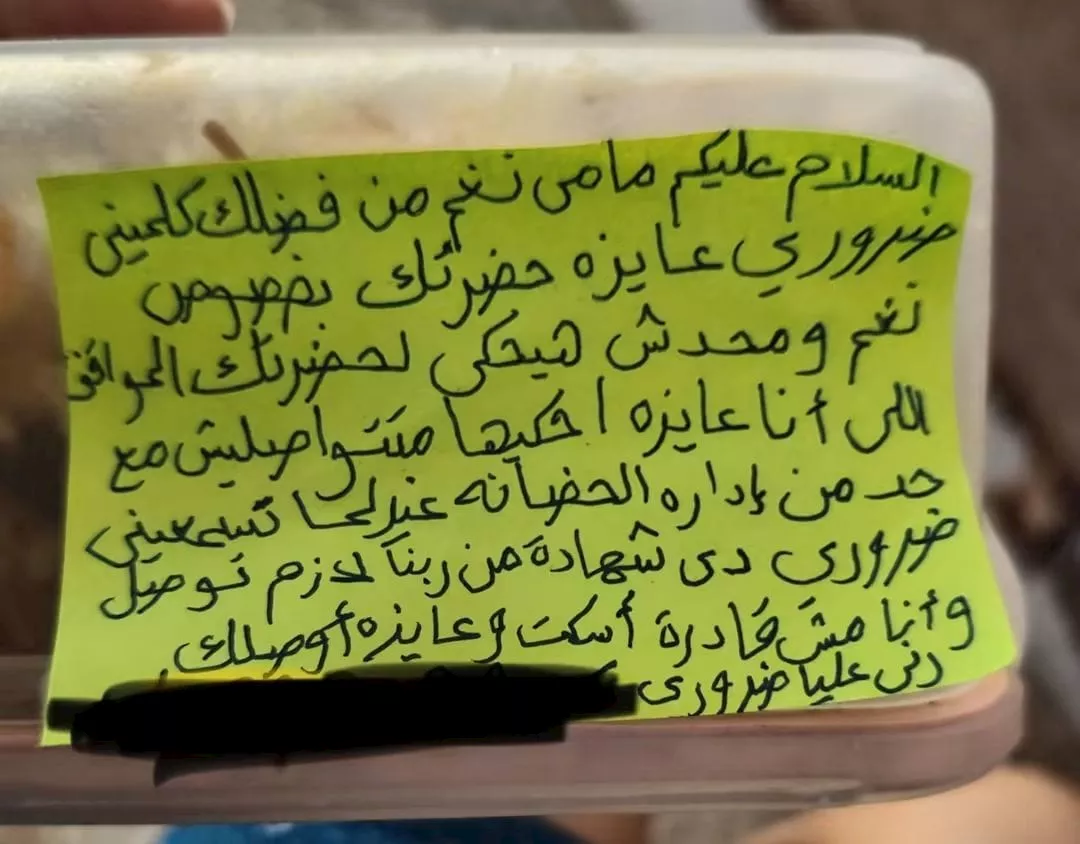 السلام عليكم مامى نغم من فضلك كلمينى
ضروري عايزه حضرتك بخصوص
نغم ومحدش هيحكى لحضرتك المواقف
اللى أنا عايزه احكيها متتواصليش مع
حد من إداره الحضانه غير لما تسمعينى
ضرورى دى شهادة من ربنا لازم توصل
وأنا مش قادرة أسكت وعايزه أوصلك
رنى عليا ضرورى